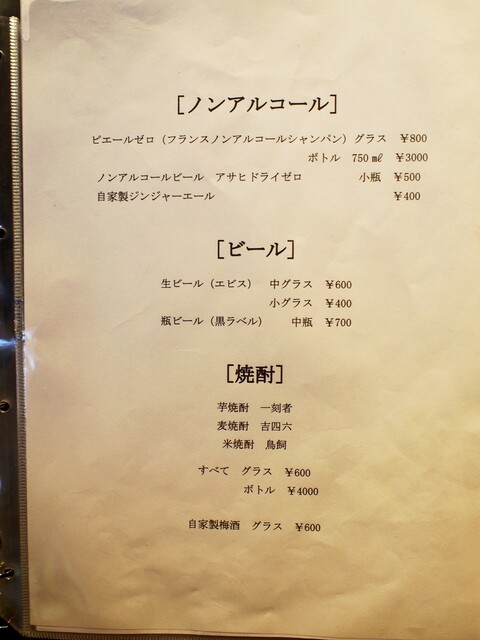 [ノンアルコール]
ピエールゼロ（フランスノンアルコールシャンパン）グラス ￥800
ボトル 750㎖ ￥3000
ノンアルコールビール アサヒドライゼロ 小瓶 ￥500
自家製ジンジャーエール ￥400
[ビール]
生ビール（エビス） 中グラス ￥600
小グラス ￥400
瓶ビール（黒ラベル） 中瓶 ￥700
[焼酎]
芋焼酎 一刻者
麦焼酎 吉四六
米焼酎 鳥飼
すべて グラス ￥600
ボトル ￥4000
自家製梅酒 グラス ￥600